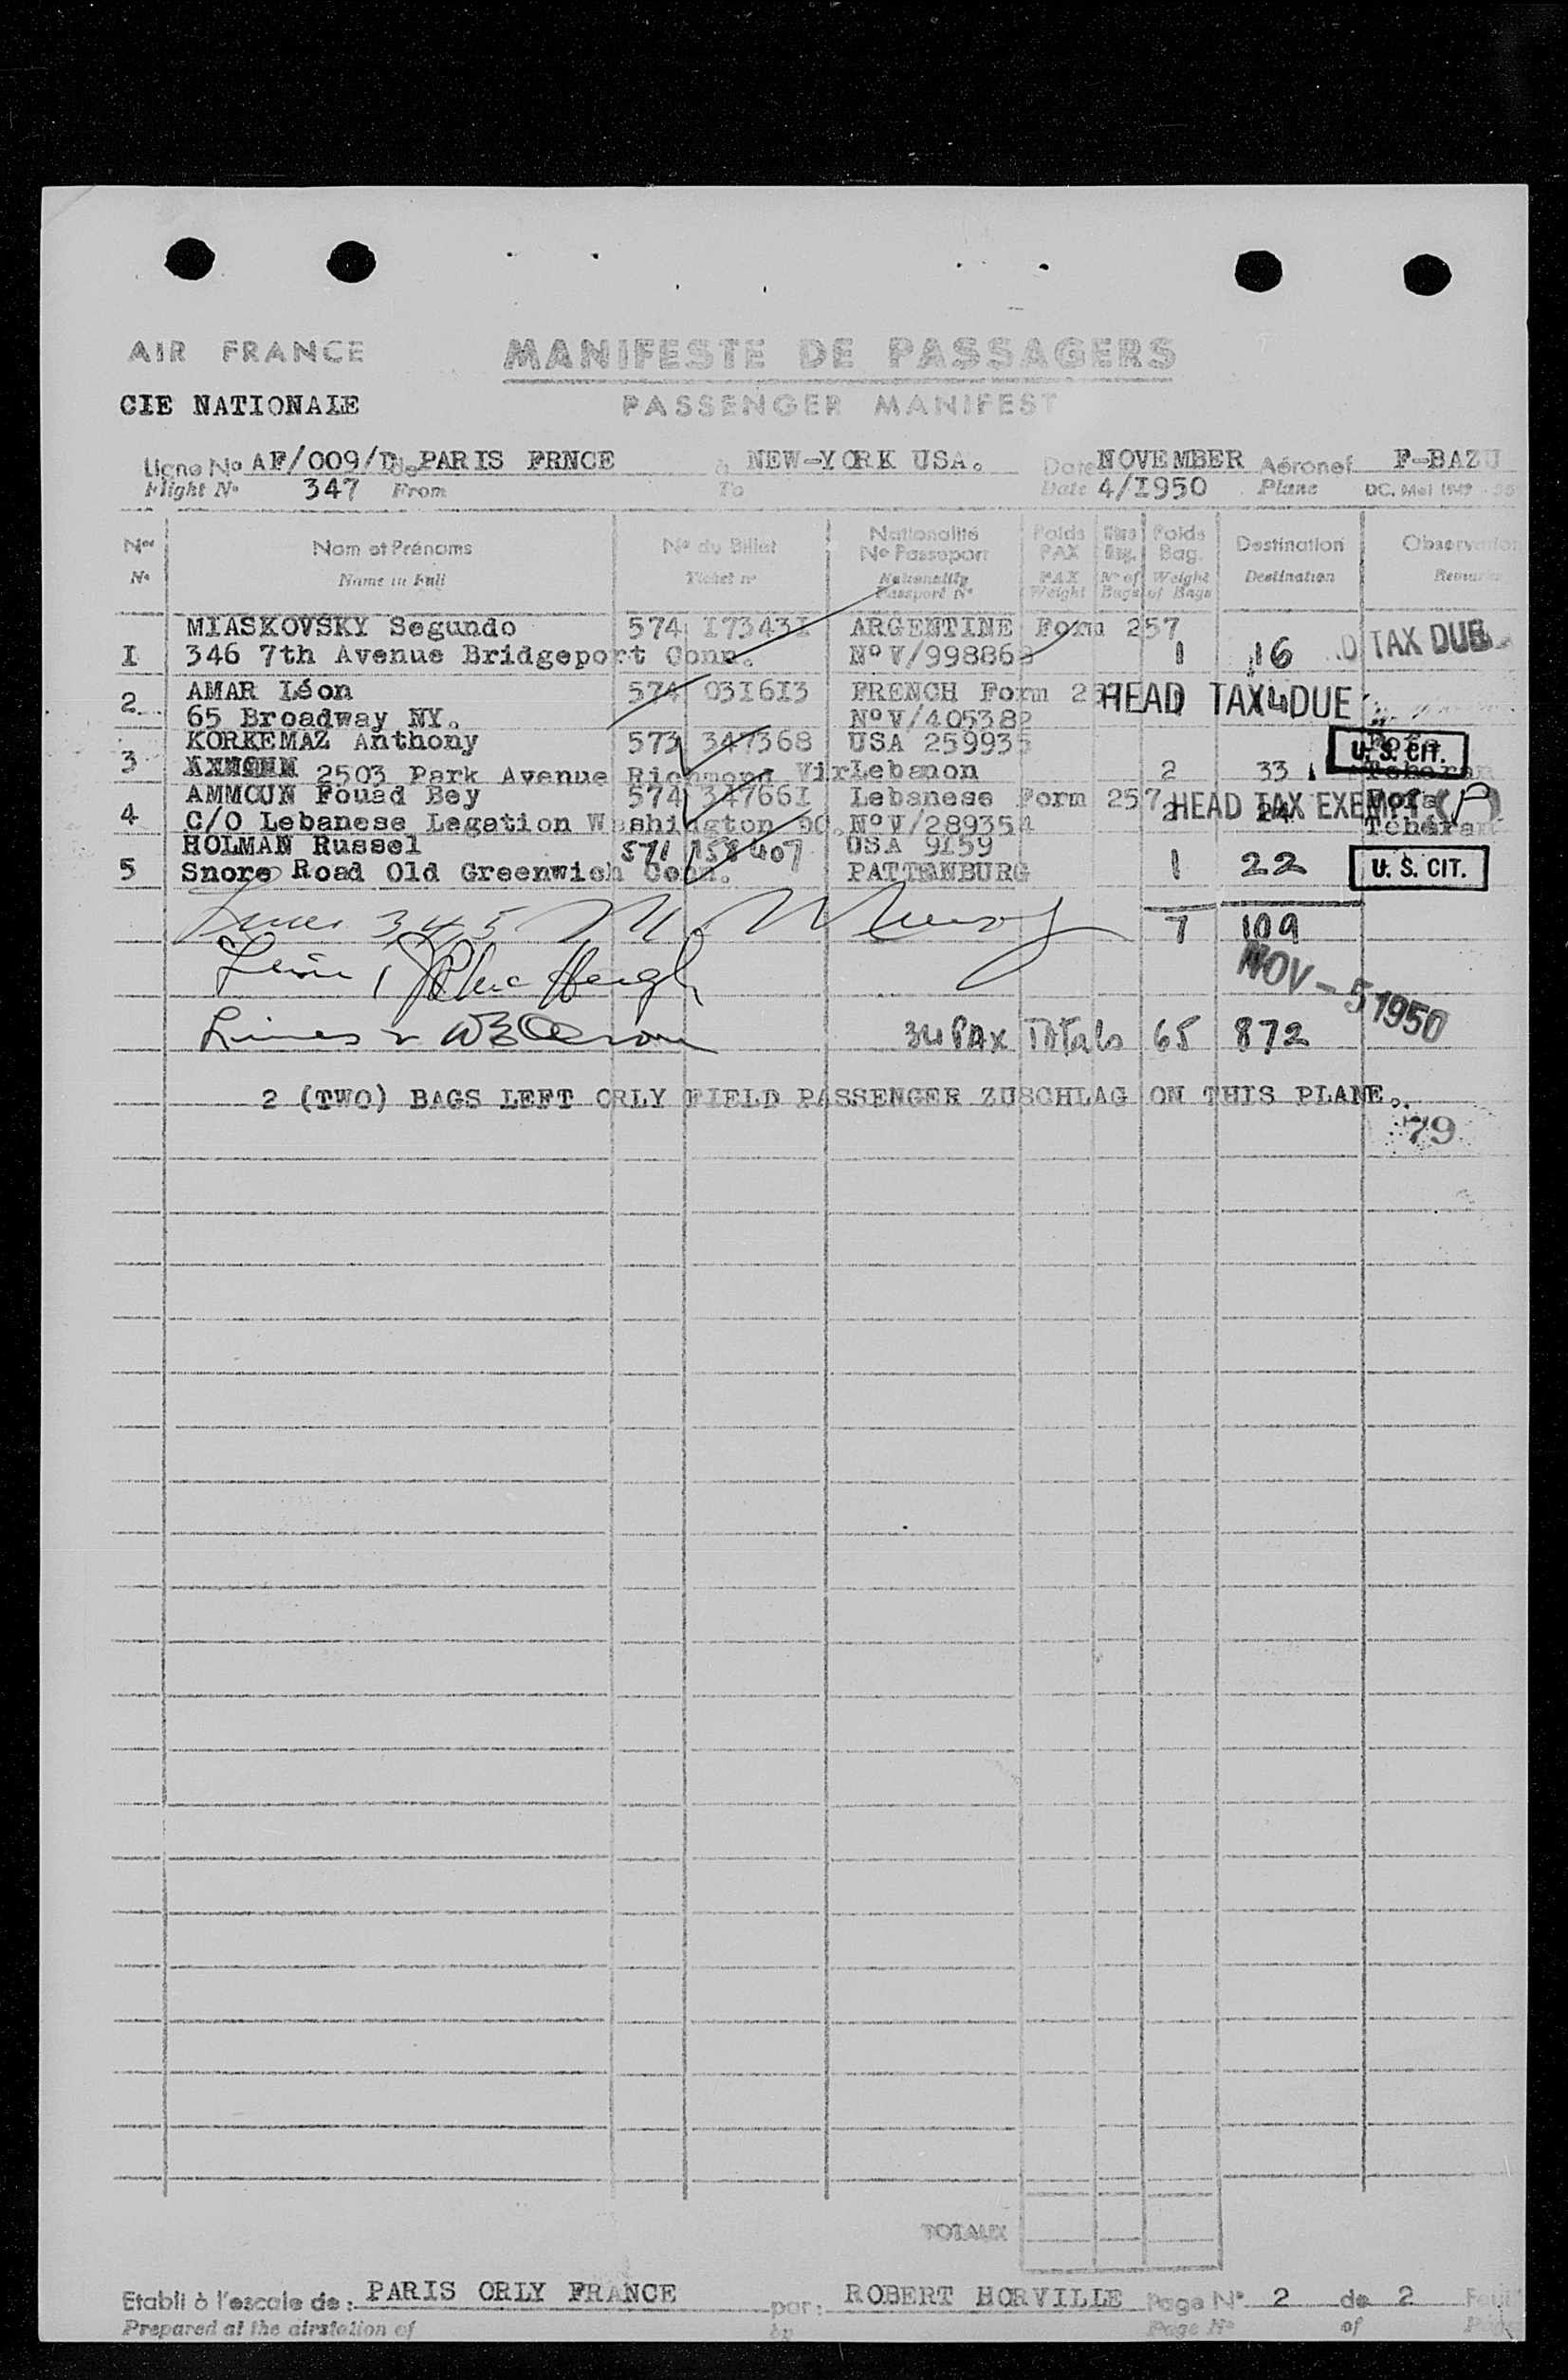 AIR FRANCE
MANIFESTE DE PASSAGERS
CIE NATIONALE
PASSENGER MANIFEST
Ligne No AF/009/D de PARIS FRNCE à NEW-YORK USA. Date NOVEMBER Aéronef F-BAZU
Flight No 347 From To Date 4/I950 Plane DC. Mai 1949
Nos Nom et Prénoms No du Billet Nationalité No Passeport Poids PAX Bag. Poids Bag. Destination Observation
No Name in Full Ticket no Nationality Passport No PAX Weight No of Bags Weight of Bags Destination Remarks
MIASKOVSKY Segundo 574 I7343I ARGENTINE Form 257
I 346 7th Avenue Bridgeport Conn. No V/998868 1 16 D TAX DUE
2 AMAR Léon 574 03I6I3 FRENCH Form 25 HEAD TAX DUE
65 Broadway NY. No V/405382
KORKEMAZ Anthony 573 347368 USA 259935 U. S. CIT.
3 2503 Park Avenue Richmond Vir Lebanon 2 33 Teheran
AMMOUN Fouad Bey 574 34766I Lebanese Form 257 HEAD TAX EXEMPT (P)
4 C/O Lebanese Legation Washington DC. No V/289354 2 24 Téhéran
HOLMAN Russel 571 158407 USA 9I59
5 Snore Road Old Greenwich Conn. PATTENBURG 1 22 U. S. CIT.
7 109
NOV - 5 1950
34 PAX Totals 65 872
2 (TWO) BAGS LEFT ORLY FIELD PASSENGER ZUSCHLAG ON THIS PLANE.
79
TOTAUX
Etabli à l'escale de : PARIS ORLY FRANCE par : ROBERT HORVILLE Page No 2 de 2
Prepared at the airstation of by Page No of